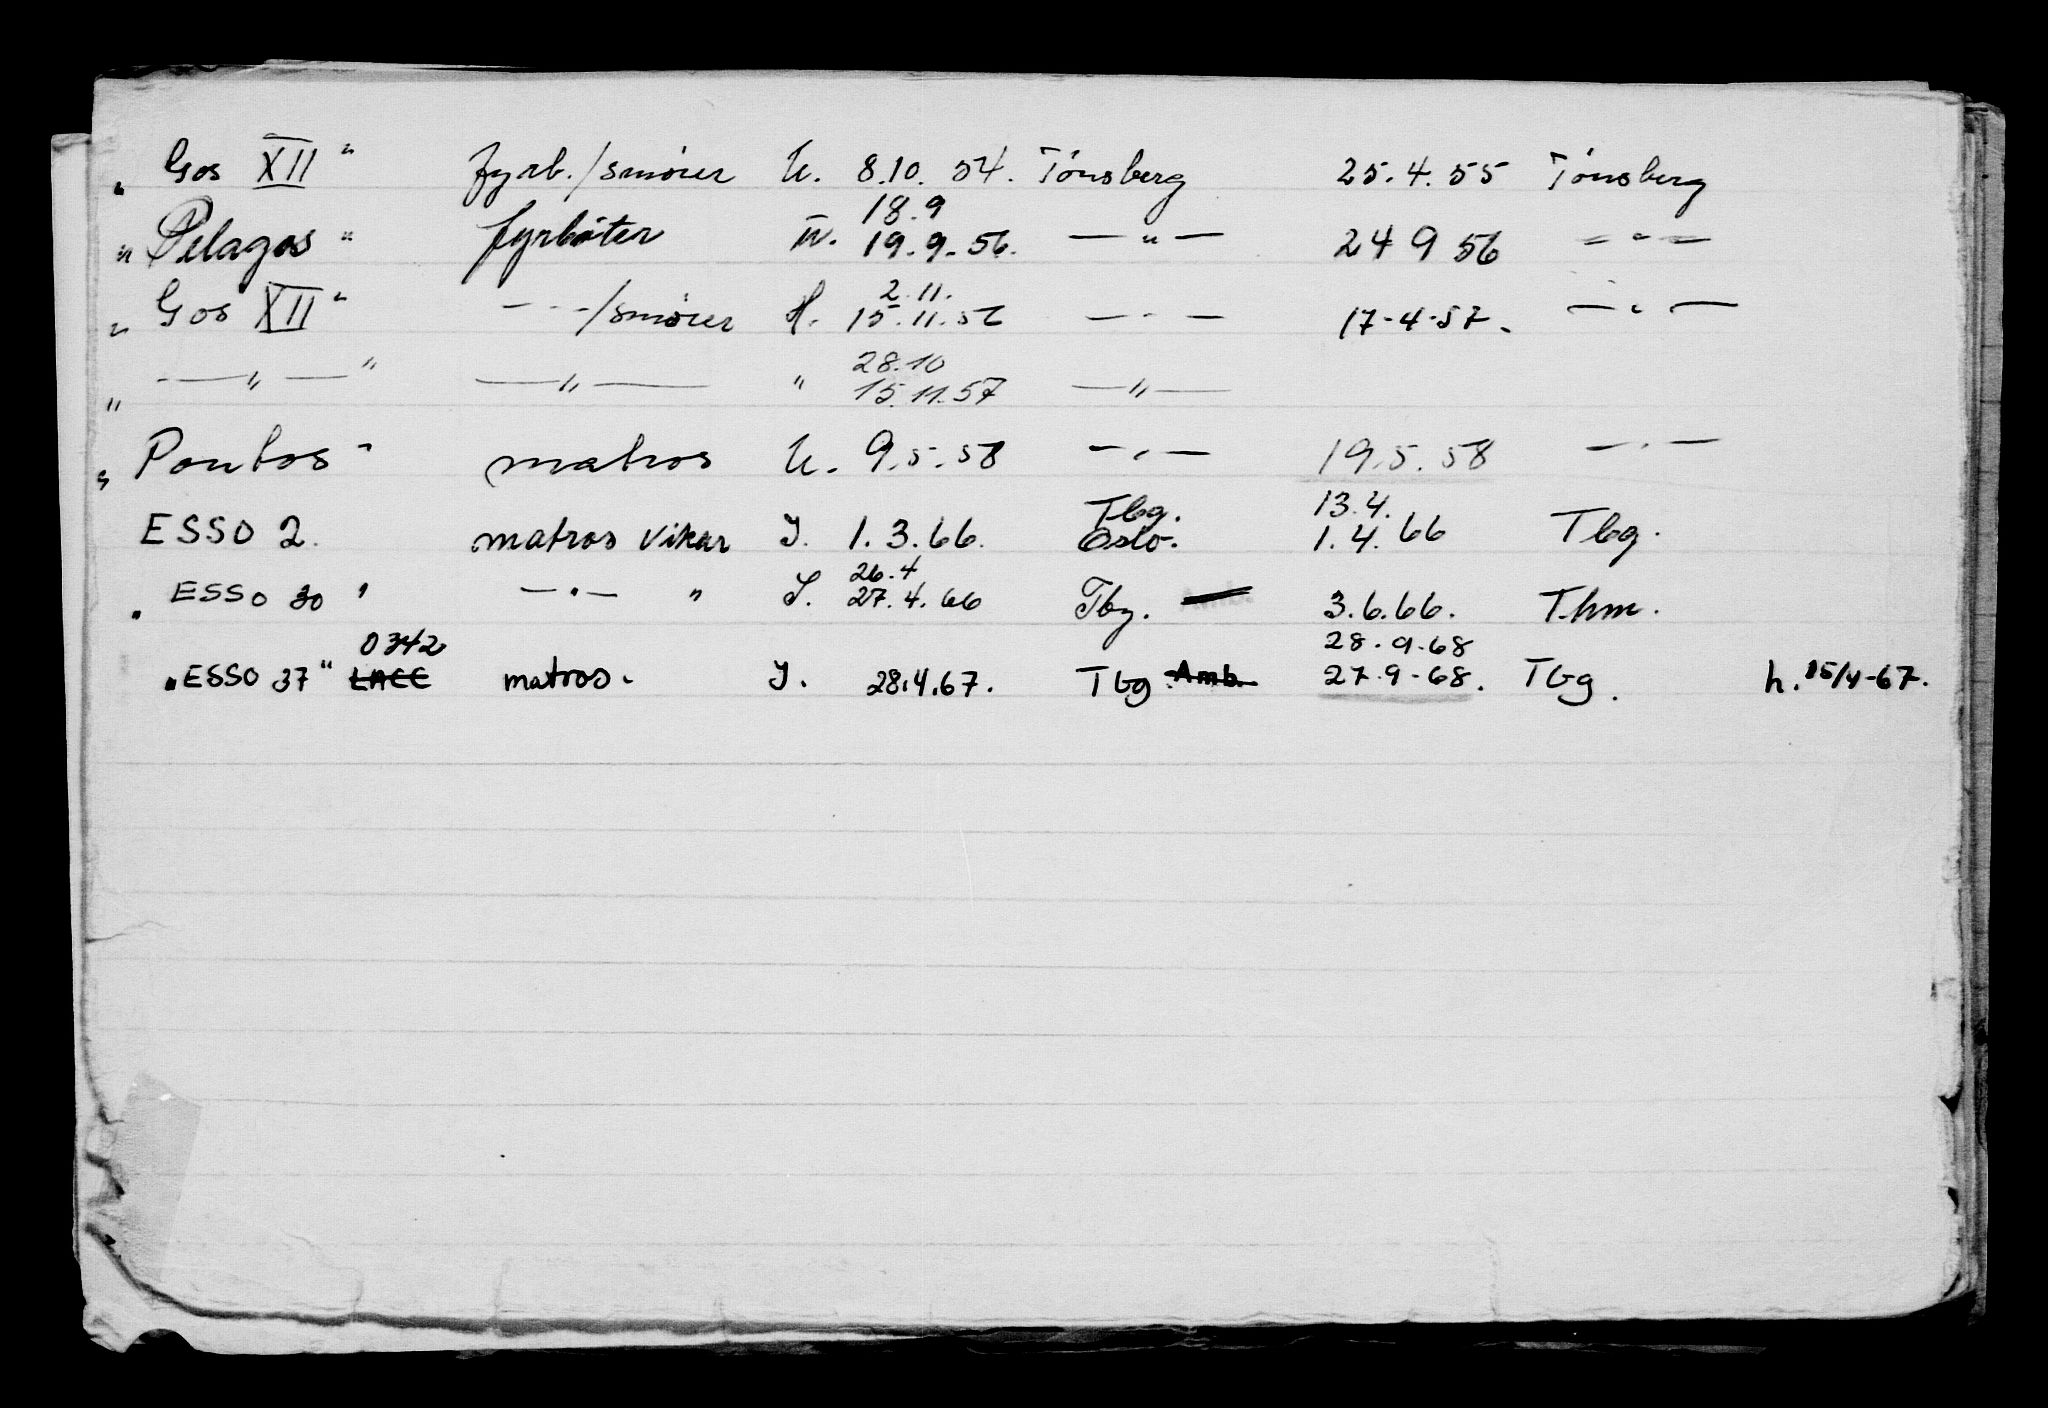 „ Gos XII " fyrb./smører U. 8.10. 54. Tönsberg 25.4.55 Tönsberg
18.9
„ Pelagos " fyrböter U. 19.9.56. — " — 24 9 56 — " —
2.11.
„ Gos XII " — " — /smører H. 15.11.56 — " — 17-4-57. — " —
28.10
„ — " — " — " — " 15.11.57 — " —
„ Pontos " matros U. 9.5.58 — " — 19.5.58 — " —
Tbg. 13.4.
ESSO 2. matros vikar J. 1.3.66. Oslo. 1.4.66 Tbg.
26.4
„ ESSO 30 " — " — " S. 27.4.66 Tbg. 3.6.66. Thm.
0342 28.9.68
„ ESSO 37 " LACE matros. J. 28.4.67. Tbg. Amb. 27.9-68. Tbg. h. 15/4-67.